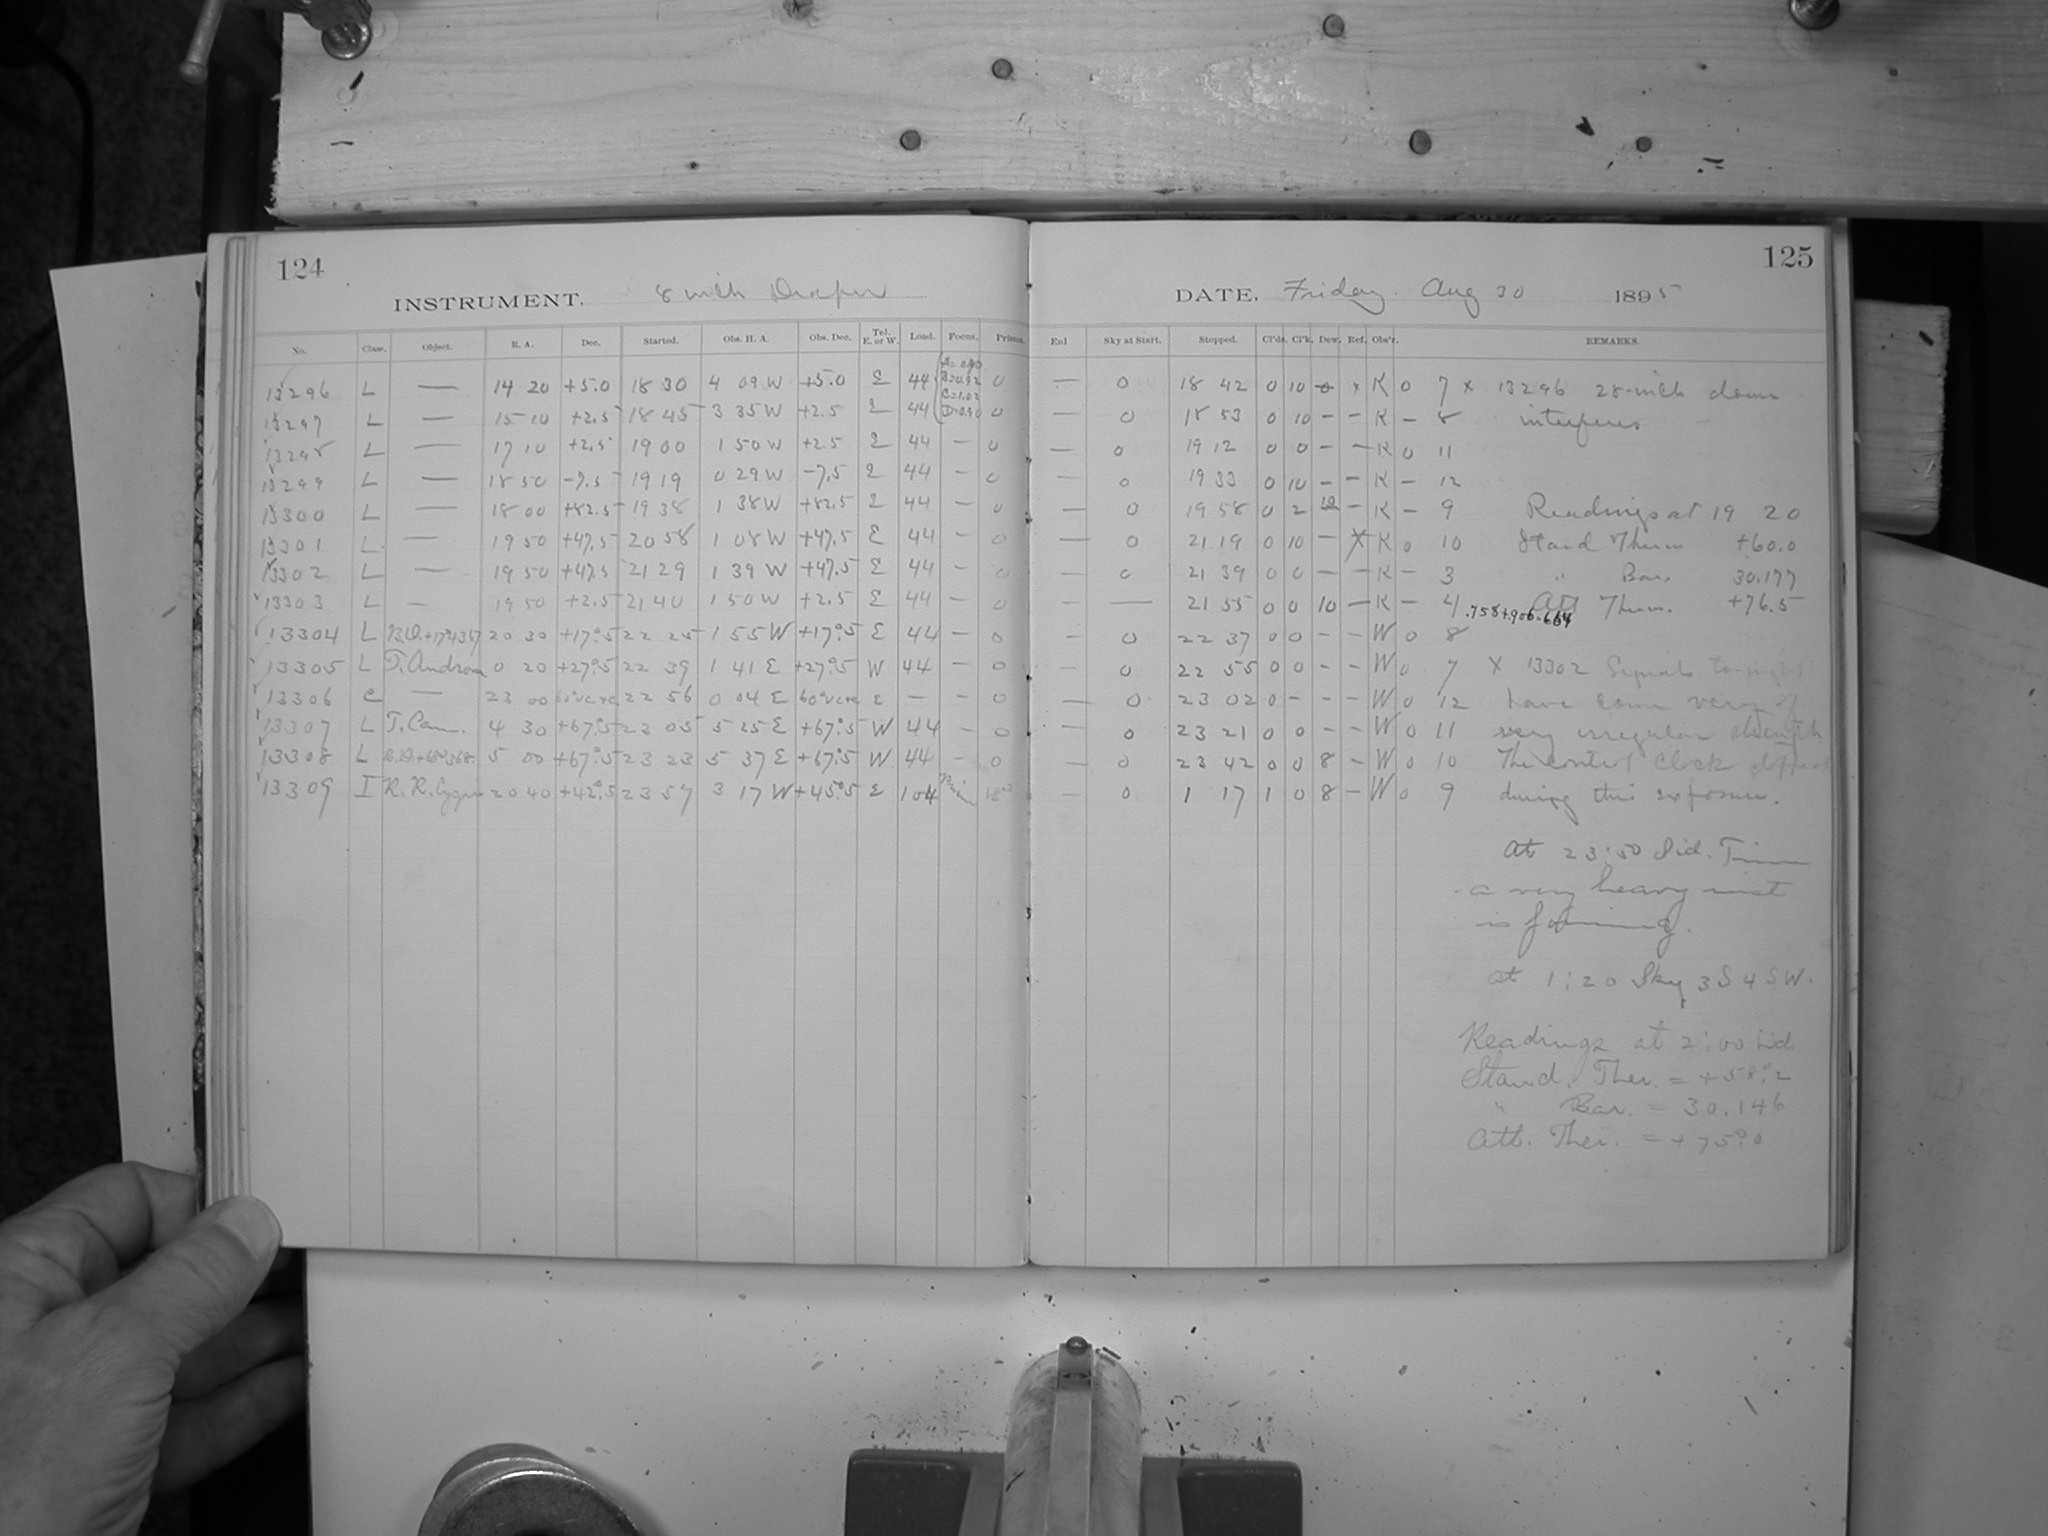 124
INSTRUMENT. 8 inch Draper
No. Class. Object. R. A. Dec. Started. Obs. H. A. Obs. Dec. Tel. E. or W. Load. Focus. Prisms.
A=0.90
B=0.92
C=1.02
D=0.90
13296 L — 14 20 +5.0 18 30 4 09 W +5.0 E 44 0
13297 L — 15 10 +2.5 18 45 3 35 W +2.5 E 44 0
13298 L — 17 10 +2.5 19 00 1 50 W +2.5 E 44 — 0
13299 L — 18 50 -7.5 19 19 0 29 W -7.5 E 44 — 0
13300 L — 18 00 +82.5 19 38 1 38 W +82.5 E 44 — 0
13301 L — 19 50 +47.5 20 58 1 08 W +47.5 E 44 — 0
13302 L — 19 50 +47.5 21 29 1 39 W +47.5 E 44 — 0
13303 L — 19 50 +2.5 21 40 1 50 W +2.5 E 44 — 0
13304 L B.D.+17°4367 20 30 +17°.5 22 25 1 55 W +17°.5 E 44 — 0
13305 L T. Androm 0 20 +27°.5 22 39 1 41 E +27°.5 W 44 — 0
13306 C — 23 00 22 56 0 04 E E — — 0
13307 L T. Cam. 4 30 +67°.5 23 05 5 25 E +67°.5 W 44 — 0
13308 L 5 00 +67°.5 23 23 5 37 E +67°.5 W 44 — 0
13309 I R. R. Cygni 20 40 +42°.5 23 57 3 17 W +45°.5 E 104
125
DATE, Friday Aug 30 1895
Enl Sky at Start. Stopped. Cl'ds. Cl'k. Dew. Ref. Obs'r. REMARKS.
— 0 18 42 0 10 0 x K 0 7 x 13296 28-inch dome
— 0 18 53 0 10 — — K — 8 interferes
— 0 19 12 0 0 — — K 0 11
— 0 19 33 0 10 — — K — 12
— 0 19 58 0 2 10 — K — 9 Readings at 19 20
— 0 21 19 0 10 — X K 0 10 Stand Therm +60.0
— 0 21 39 0 0 — — K — 3 " Bar. 30.177
— — 21 55 0 0 10 — K — 4 Att Therm. +76.5
.758+.906=.664
— 0 22 37 0 0 — — W 0 8
— 0 22 55 0 0 — — W 0 7 X 13302 Signals tonight
— 0 23 02 0 — — — W 0 12 have come very
— 0 23 21 0 0 — — W 0 11 very irregular strength
— 0 23 42 0 0 8 — W 0 10 The control clock stopped
— 0 1 17 1 0 8 — W 0 9 during this exposure.
At 23:50 Sid. Time
a very heavy mist
is forming.
At 1:20 Sky 3 S 4 SW.
Readings at 2:00 Sid.
Stand. Ther. = +58°.2
" Bar. = 30.146
Att. Ther. = +75°.0